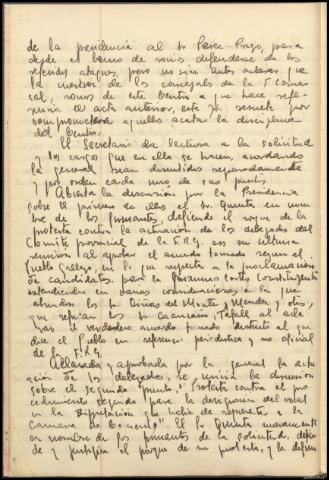 de la presidencia al Sr Perez Prego, para
desde el banco de socios defenderse de los
referidos ataques, pero no sin antes aclarar que
la mocion de los concejales de la F.
socios de este Centro a que hace refe-
rencia el acta anterior, este se remite por
comprometerse aquellos acatar la disciplina
del Centro.
El Secretario da lectura a la solicitud
y los cargos que en ella se hacen, acordando
la general sean discutidos separadamente
y por orden cada uno de sus puntos.
Abierta la discusion por la Presidencia
sobre el primero de ellos el Sr. Quinta en nom-
bre de los firmantes, defiende el porque de la
protesta contra la actuación de los delegados del
Comite provincial de la F.R.G. en su ultima
reunion al aprobar el acuerdo tomado segun el
Pueblo Gallego, en lo que respecta a la proclamación
de candidatos para las proximas Cortes Constituyentes
extendiendose en varias consideraciones a la que
abundan los Sr Viñas del Monte y Mendez y otros,
que rebaten los Sr Caamaño, Tafall al acla
rar el verdadero acuerdo tomado distinto al que
dice el Pueblo en referencia periodistica y no oficial
de la F.R.G.
Aclarada y aprobada por la general la actua
ción de los delegados, se inicia la discusion
sobre el segundo punto, "Protesta contra el pro
cedimiento seguido para la designacion del vocal
en la Diputación que habia de representar a la
Camara de Comercio". El Sr Quinta nuevamente
en nombre de los firmantes de la solicitud, defien
de y justifica el porque de su protesta, y la defien